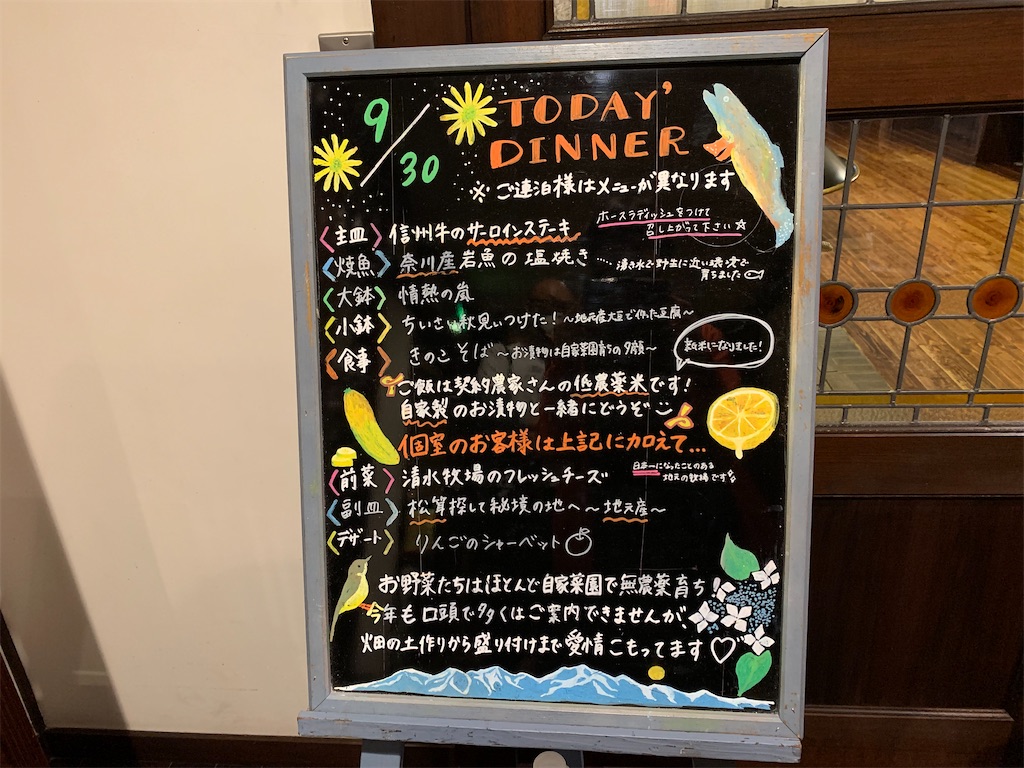 9/30
TODAY'
DINNER
※ご連泊様はメニューが異なります
〈主皿〉信州牛のサーロインステーキ
ホースラディッシュをつけて
召し上がって下さい☆
〈焼魚〉奈川産岩魚の塩焼き……湧き水で野生に近い環境で
育ちました
〈大鉢〉情熱の嵐
〈小鉢〉ちいさい秋見いつけた!〜地元産大豆で作った豆腐〜
〈食事〉きのこそば〜お漬物は自家菜園育ちの夕顔〜
新米になりました!
ご飯は契約農家さんの低農薬米です!
自家製のお漬物と一緒にどうぞ
個室のお客様は上記に加えて…
〈前菜〉清水牧場のフレッシュチーズ
日本一になったことのある
地元の牧場です
〈副皿〉松茸探して秘境の地へ〜地元産〜
〈デザート〉りんごのシャーベット
お野菜たちはほとんど自家菜園で無農薬育ち!
今年も口頭で多くはご案内できませんが、
畑の土作りから盛り付けまで愛情こもってます♡